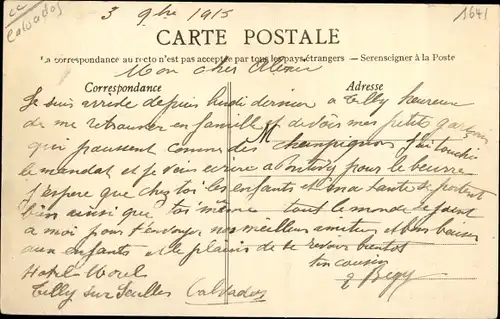 Calvados
3 9bre 1915
1641
CARTE POSTALE
La correspondance au recto n'est pas acceptée par tous les pays étrangers — Se renseigner à la Poste
Mon cher Alexis
Correspondance
Adresse
Je suis arrivée depuis lundi dernier a Tilly heureuse
de me retrouver en famille et de voir mes petits garçons
qui poussent comme des champignons j'ai touché
le mandat et je vais ecrire a Pontivy pour le beurre
J'espere que chez toi les enfants et ma tante se portent
bien ainsi que toi même tout le monde se joint
a moi pour t'envoyer nos meilleurs amities et bons baisers
aux enfants et le plaisir de te revoir bientot
ton cousin
Hotel
Tilly sur Seulles Calvados